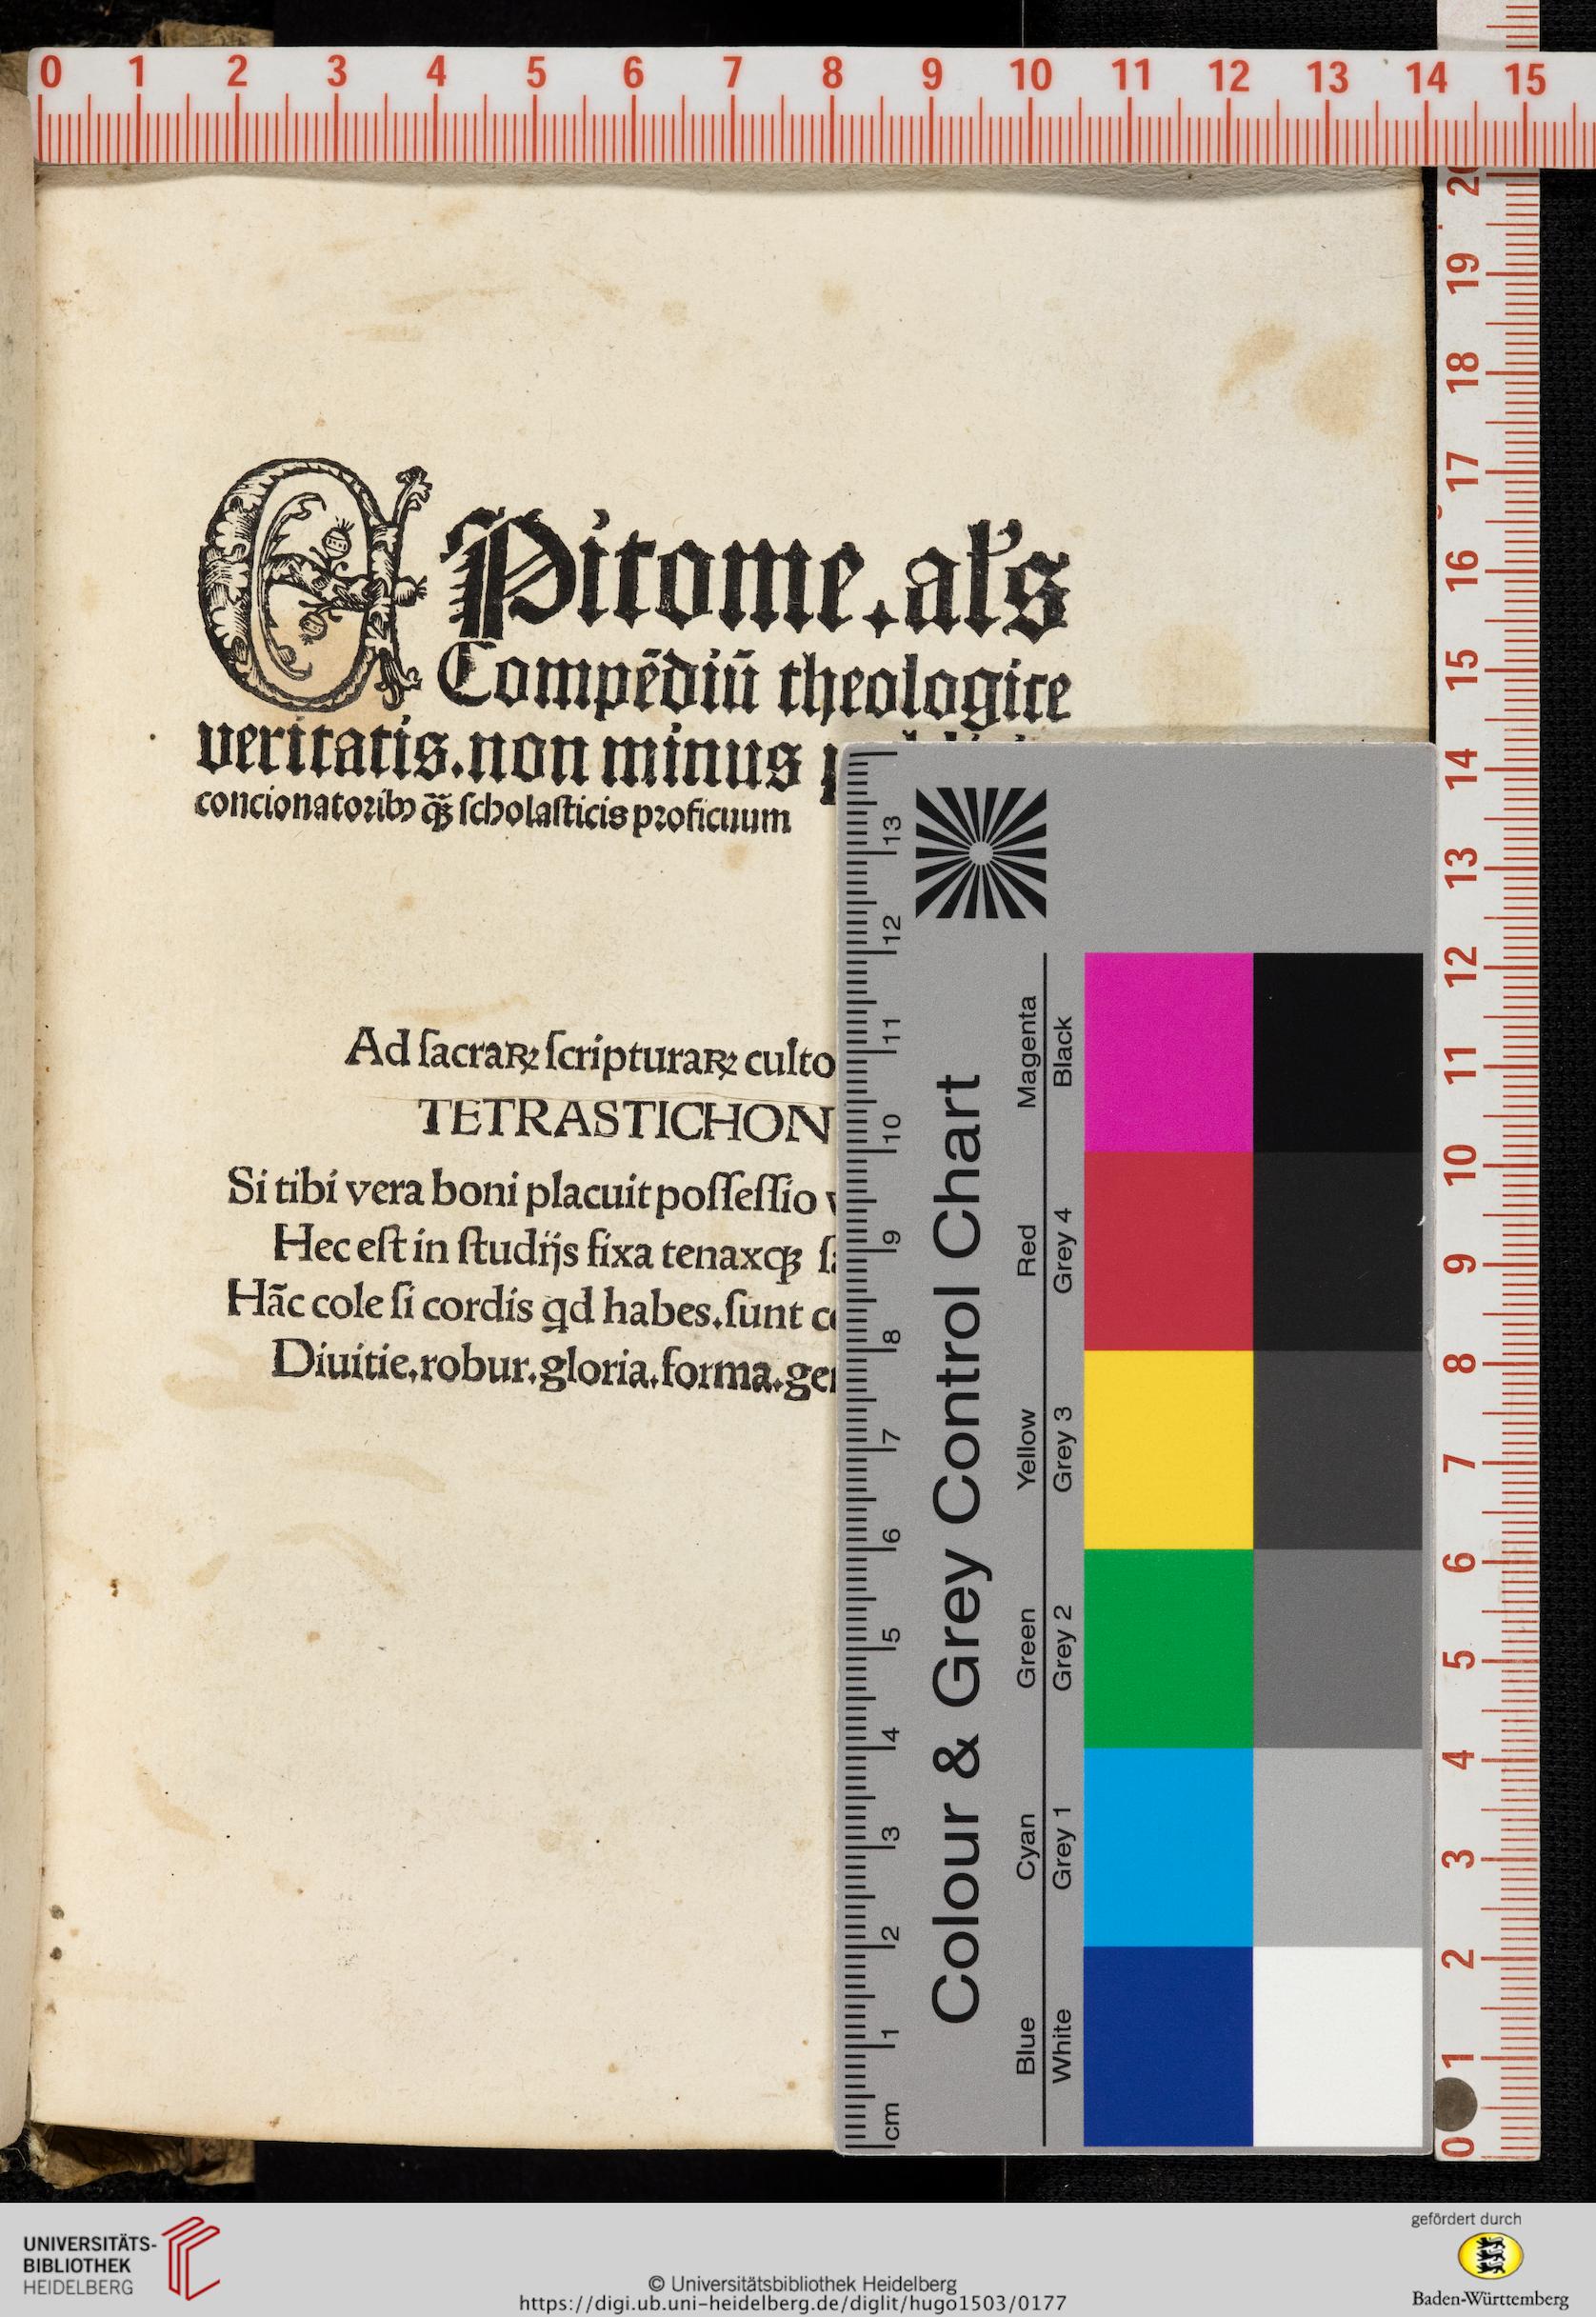 EPitome.al's
Compēdiū theologice
veritatis.non minus
concionatoribꝰ q̃ꝫ ſcholaſticis proficuum
Ad ſacraꝝ ſcripturaꝝ culto
TETRASTICHON
Si tibi vera boni placuit poſſeſſio
Hec eſt in ſtudijs fixa tenaxqꝫ
Hāc cole ſi cordis qd habes.ſunt
Diuitie.robur.gloria.forma.
0 1 2 3 4 5 6 7 8 9 10 11 12 13 14 15
19
18
17
16
15
14
13
12
11
10
9
8
7
6
5
4
3
2
1
0
13
12
11
10
9
8
7
6
5
4
3
2
1
cm
Colour & Grey Control Chart
Magenta
Black
Red
Grey 4
Yellow
Grey 3
Green
Grey 2
Cyan
Grey 1
Blue
White
UNIVERSITÄTS-
BIBLIOTHEK
HEIDELBERG
© Universitätsbibliothek Heidelberg
https://digi.ub.uni-heidelberg.de/diglit/hugo1503/0177
gefördert durch
Baden-Württemberg